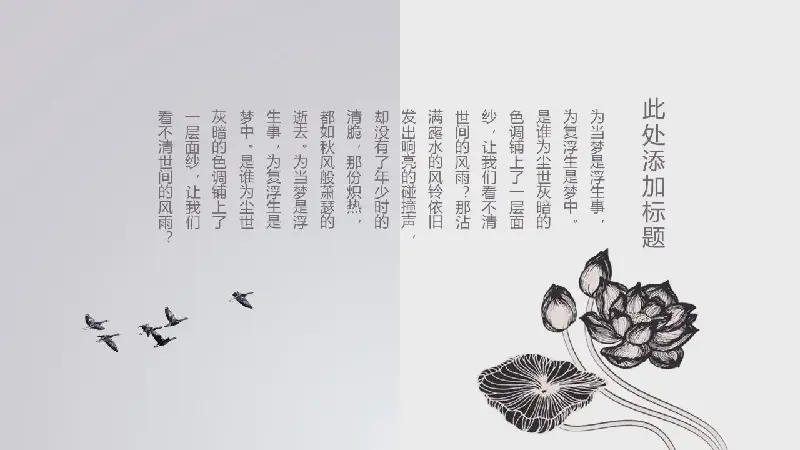 此处添加标题
为当梦是浮生事，
为复浮生是梦中。
是谁为尘世灰暗的
色调铺上了一层面
纱，让我们看不清
世间的风雨？那沾
满露水的风铃依旧
发出响亮的碰撞声，
却没有了年少时的
清脆，那份炽热，
都如秋风般萧瑟的
逝去。为当梦是浮
生事，为复浮生是
梦中。是谁为尘世
灰暗的色调铺上了
一层面纱，让我们
看不清世间的风雨？